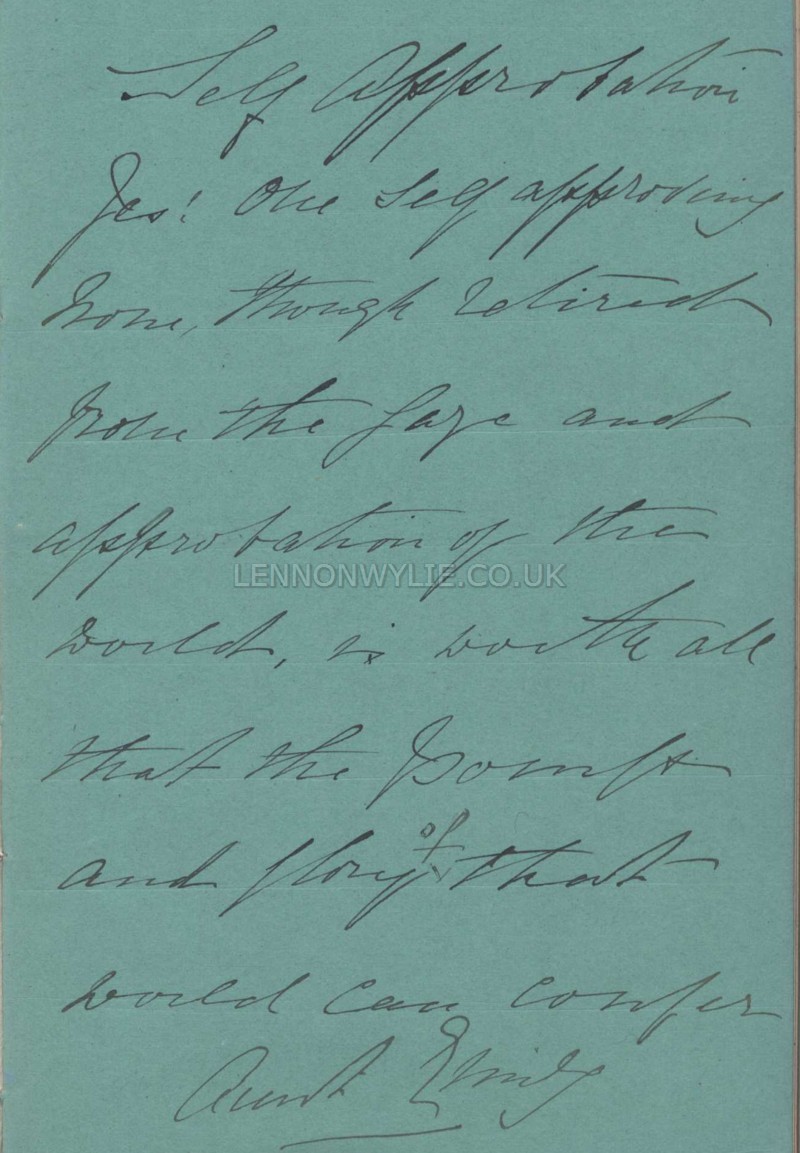 Self Approbation
Yes! One self approving
hour, though retired
from the gaze and
approbation of the
LENNONWYLIE.CO.UK
world, is worth all
that the
of
and glory that
world can confer
Aunt Emily